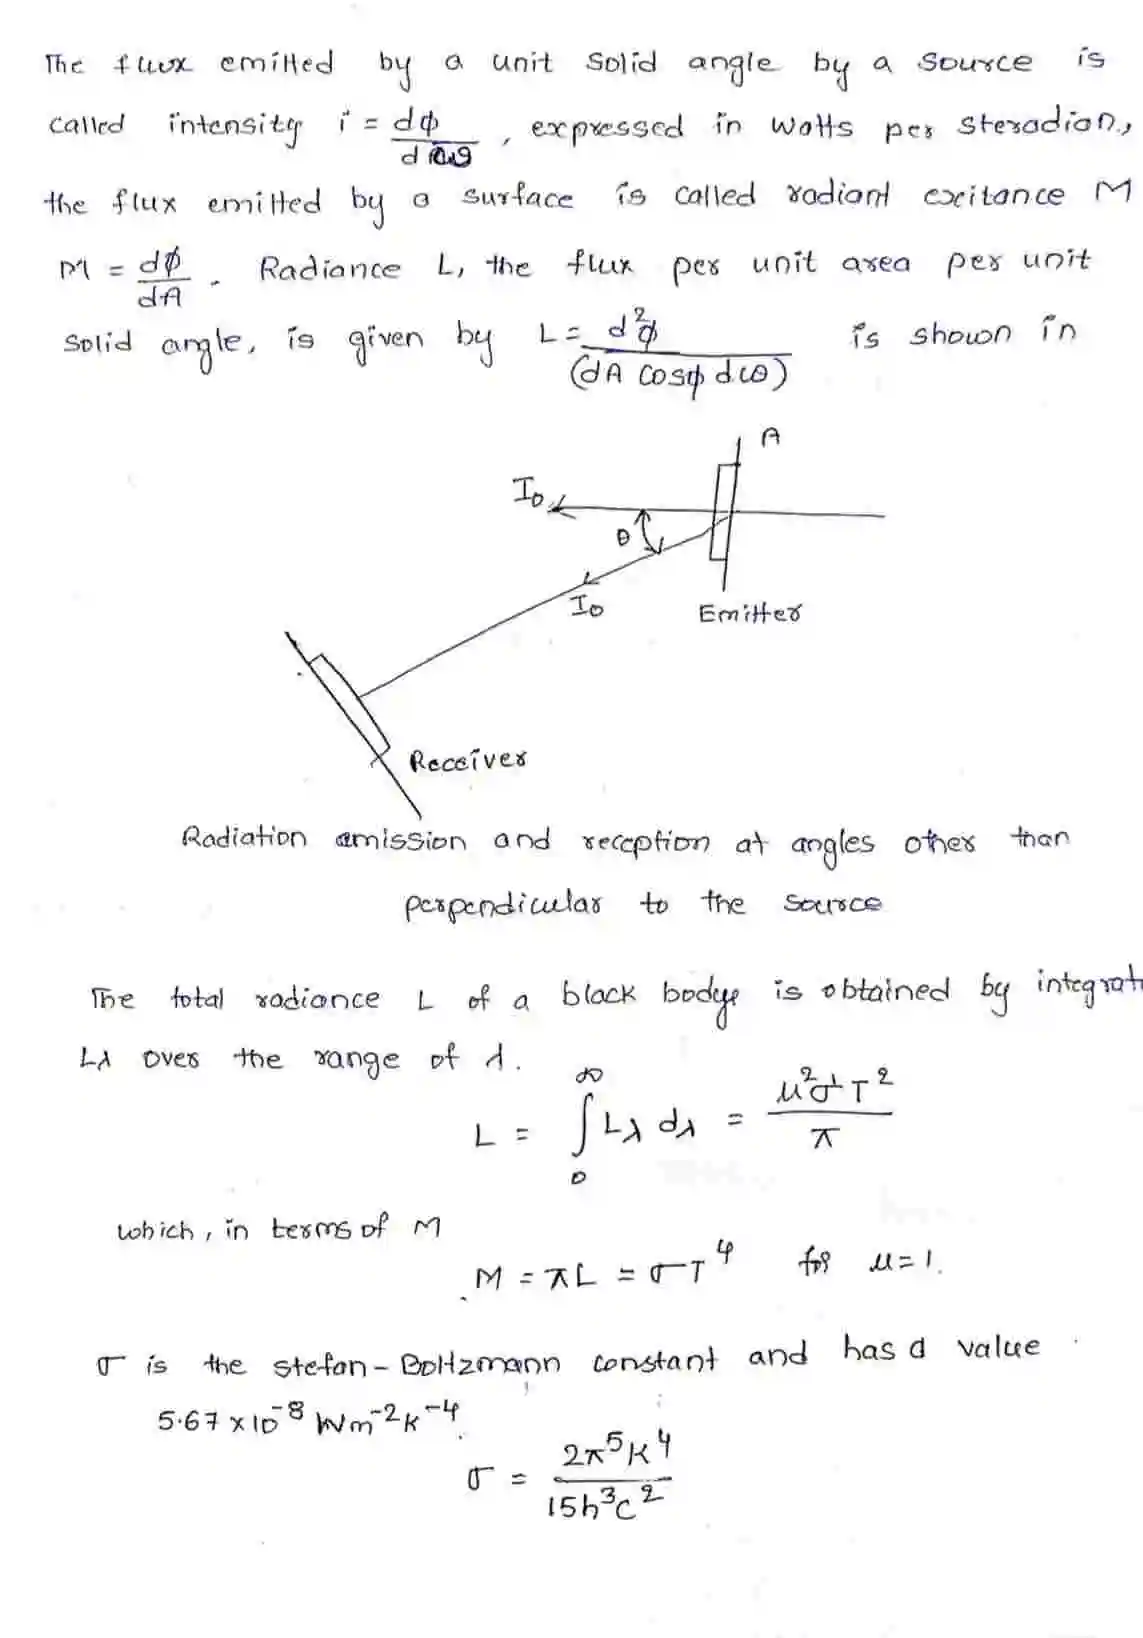 The flux emitted by a unit solid angle by a source is
called intensity i = dφ/dω, expressed in Watts per steradian,
the flux emitted by a surface is called radiant excitance M
M = dφ/dA. Radiance L, the flux per unit area per unit
solid angle, is given by L = d²φ/(dA cosφ dω) is shown in
A
I₀
θ
I₀
Emitter
Receiver
Radiation emission and reception at angles other than
perpendicular to the source
The total radiance L of a black body is obtained by integrat
Lλ over the range of λ.
L = ∫₀^∞ Lλ dλ = μ²σT²/π
which, in terms of M
M = πL = σT⁴ for μ=1.
σ is the stefan-Boltzmann constant and has a value
5.67 x 10⁻⁸ Wm⁻²K⁻⁴.
σ = 2π⁵K⁴/15h³c²